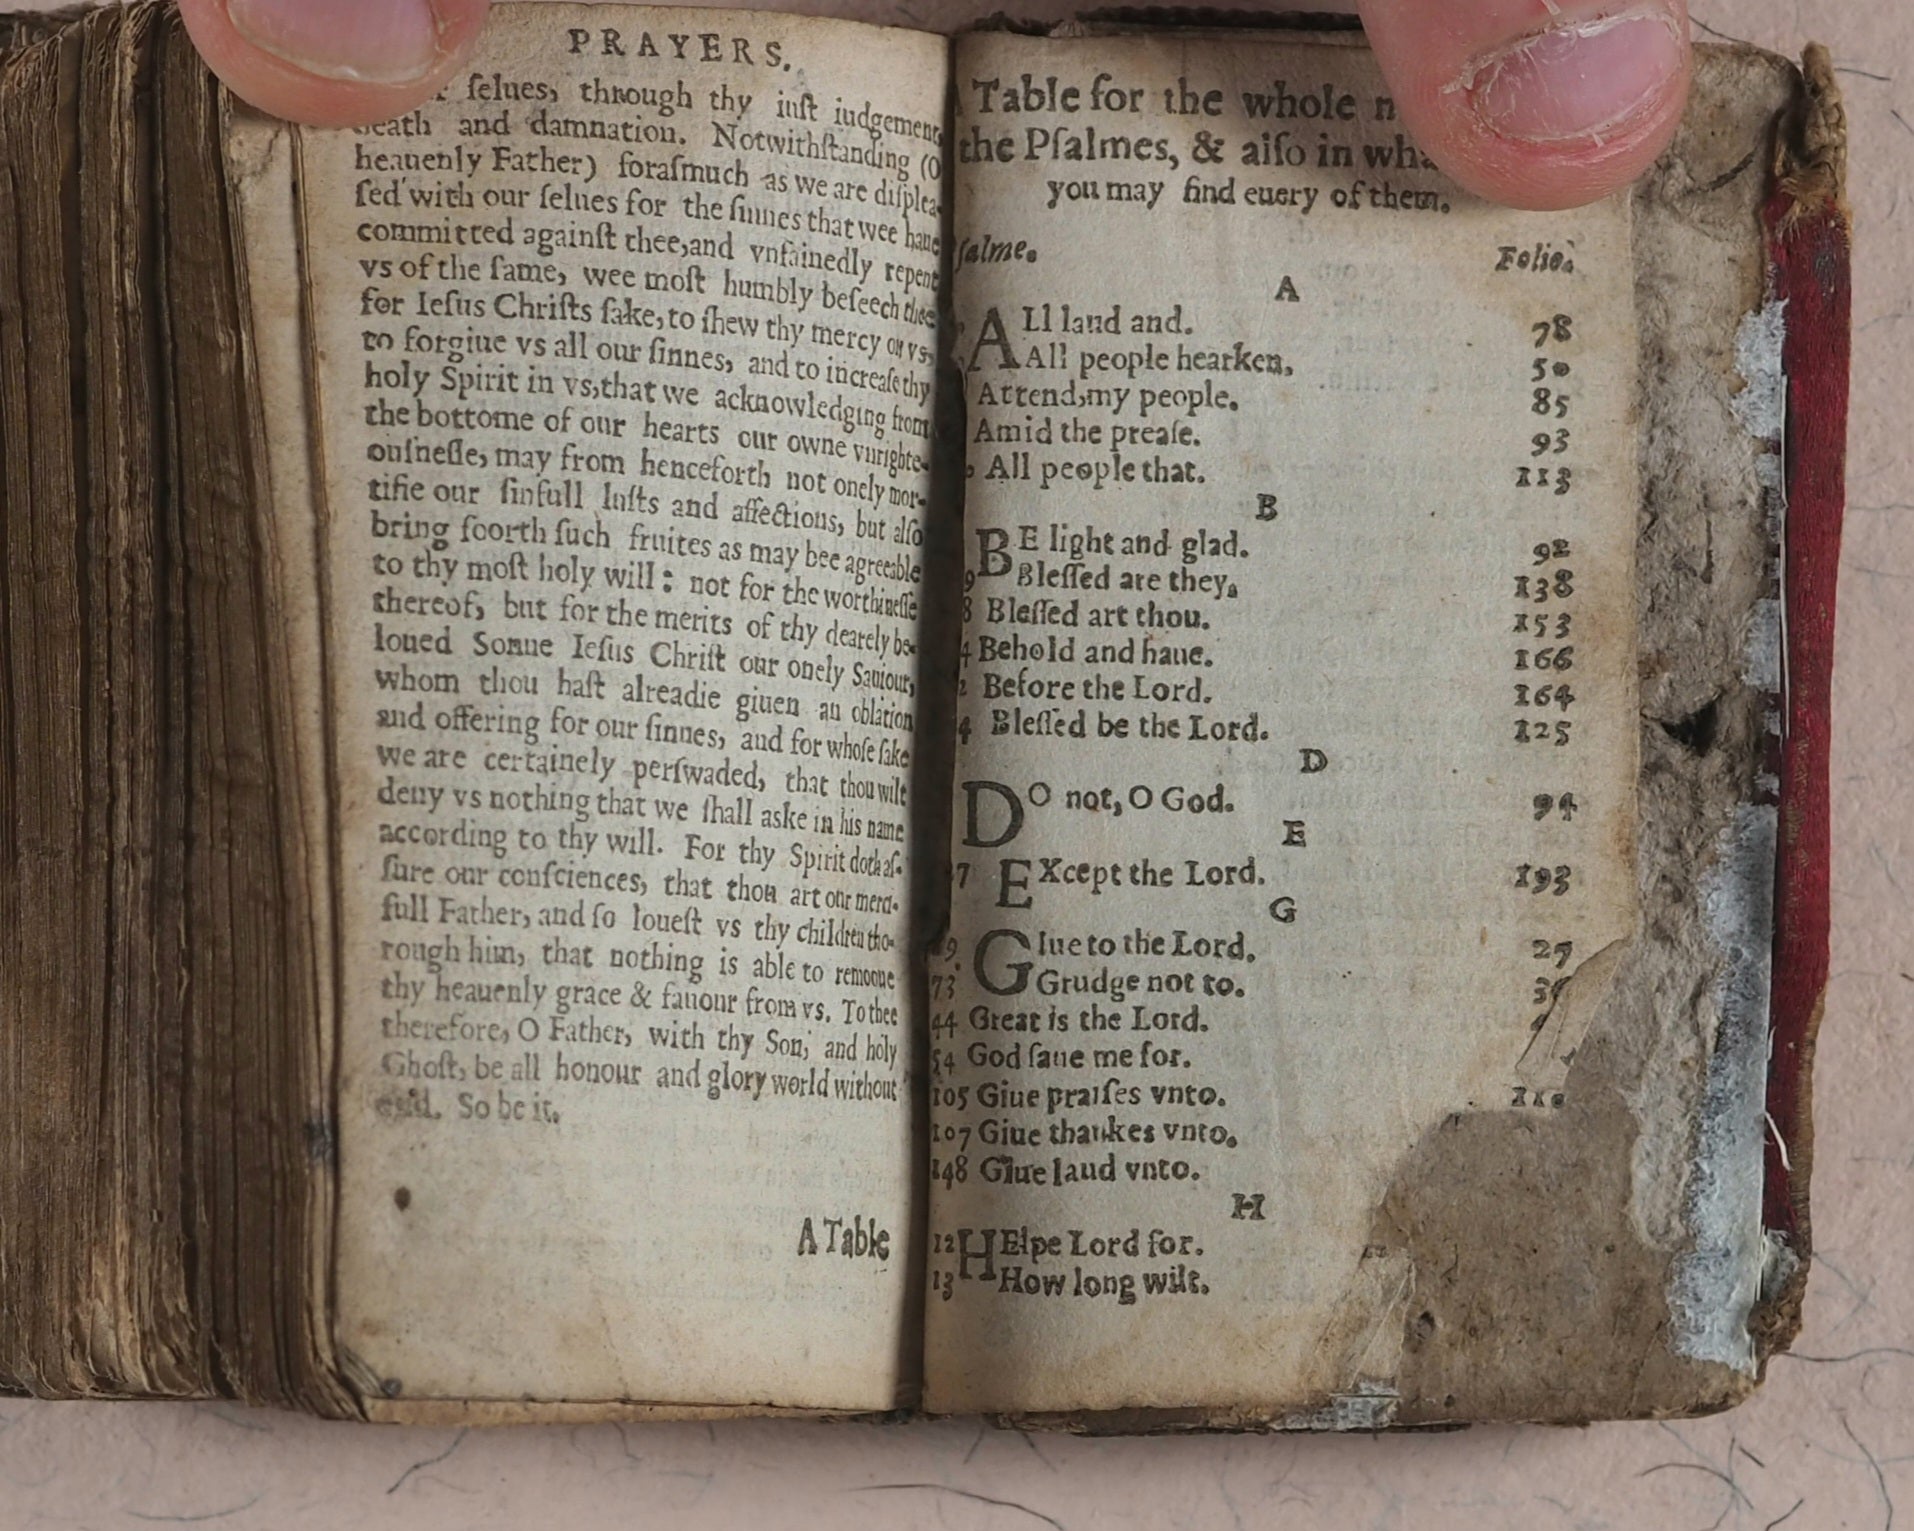 PRAYERS.
ſelues, through thy iuſt iudgement,
death and damnation. Notwithſtanding (O
heauenly Father) foraſmuch as we are diſplea-
ſed with our ſelues for the ſinnes that wee haue
committed againſt thee,and vnfainedly repent
vs of the ſame, wee moſt humbly beſeech thee
for Ieſus Chriſts ſake, to ſhew thy mercy on vs,
to forgiue vs all our ſinnes, and to increaſe thy
holy Spirit in vs,that we acknowledging from
the bottome of our hearts our owne vnrighte-
ouſneſſe, may from henceforth not onely mor-
tifie our ſinfull luſts and affections, but alſo
bring foorth ſuch fruites as may bee agreeable
to thy moſt holy will: not for the worthineſſe
thereof, but for the merits of thy dearely be-
loued Sonne Ieſus Chriſt our onely Sauiour,
whom thou haſt alreadie giuen an oblation
and offering for our ſinnes, and for whoſe ſake
we are certainely perſwaded, that thou wilt
deny vs nothing that we ſhall aske in his name
according to thy will. For thy Spirit doth aſ-
ſure our conſciences, that thou art our merci-
full Father, and ſo loueſt vs thy children tho-
rough him, that nothing is able to remooue
thy heauenly grace & fauour from vs. To thee
therefore, O Father, with thy Son, and holy
Ghoſt, be all honour and glory world without
end. So be it.
A Table
Table for the whole
the Pſalmes, & aiſo in
you may find euery of them.
ſalme. Folio.
A
ALl laud and. 78
All people hearken. 50
Attend,my people. 85
Amid the preaſe. 93
All people that. 113
B
BE light and glad. 92
9 Bleſſed are they. 138
8 Bleſſed art thou. 153
4 Behold and haue. 166
2 Before the Lord. 164
4 Bleſſed be the Lord. 125
D
DO not, O God. 94
E
7 EXcept the Lord. 193
G
9. Giue to the Lord. 27
73 Grudge not to.
44 Great is the Lord.
54 God ſaue me for.
105 Giue praiſes vnto.
107 Giue thankes vnto.
148 Giue laud vnto.
H
12 HElpe Lord for.
13 How long wilt.